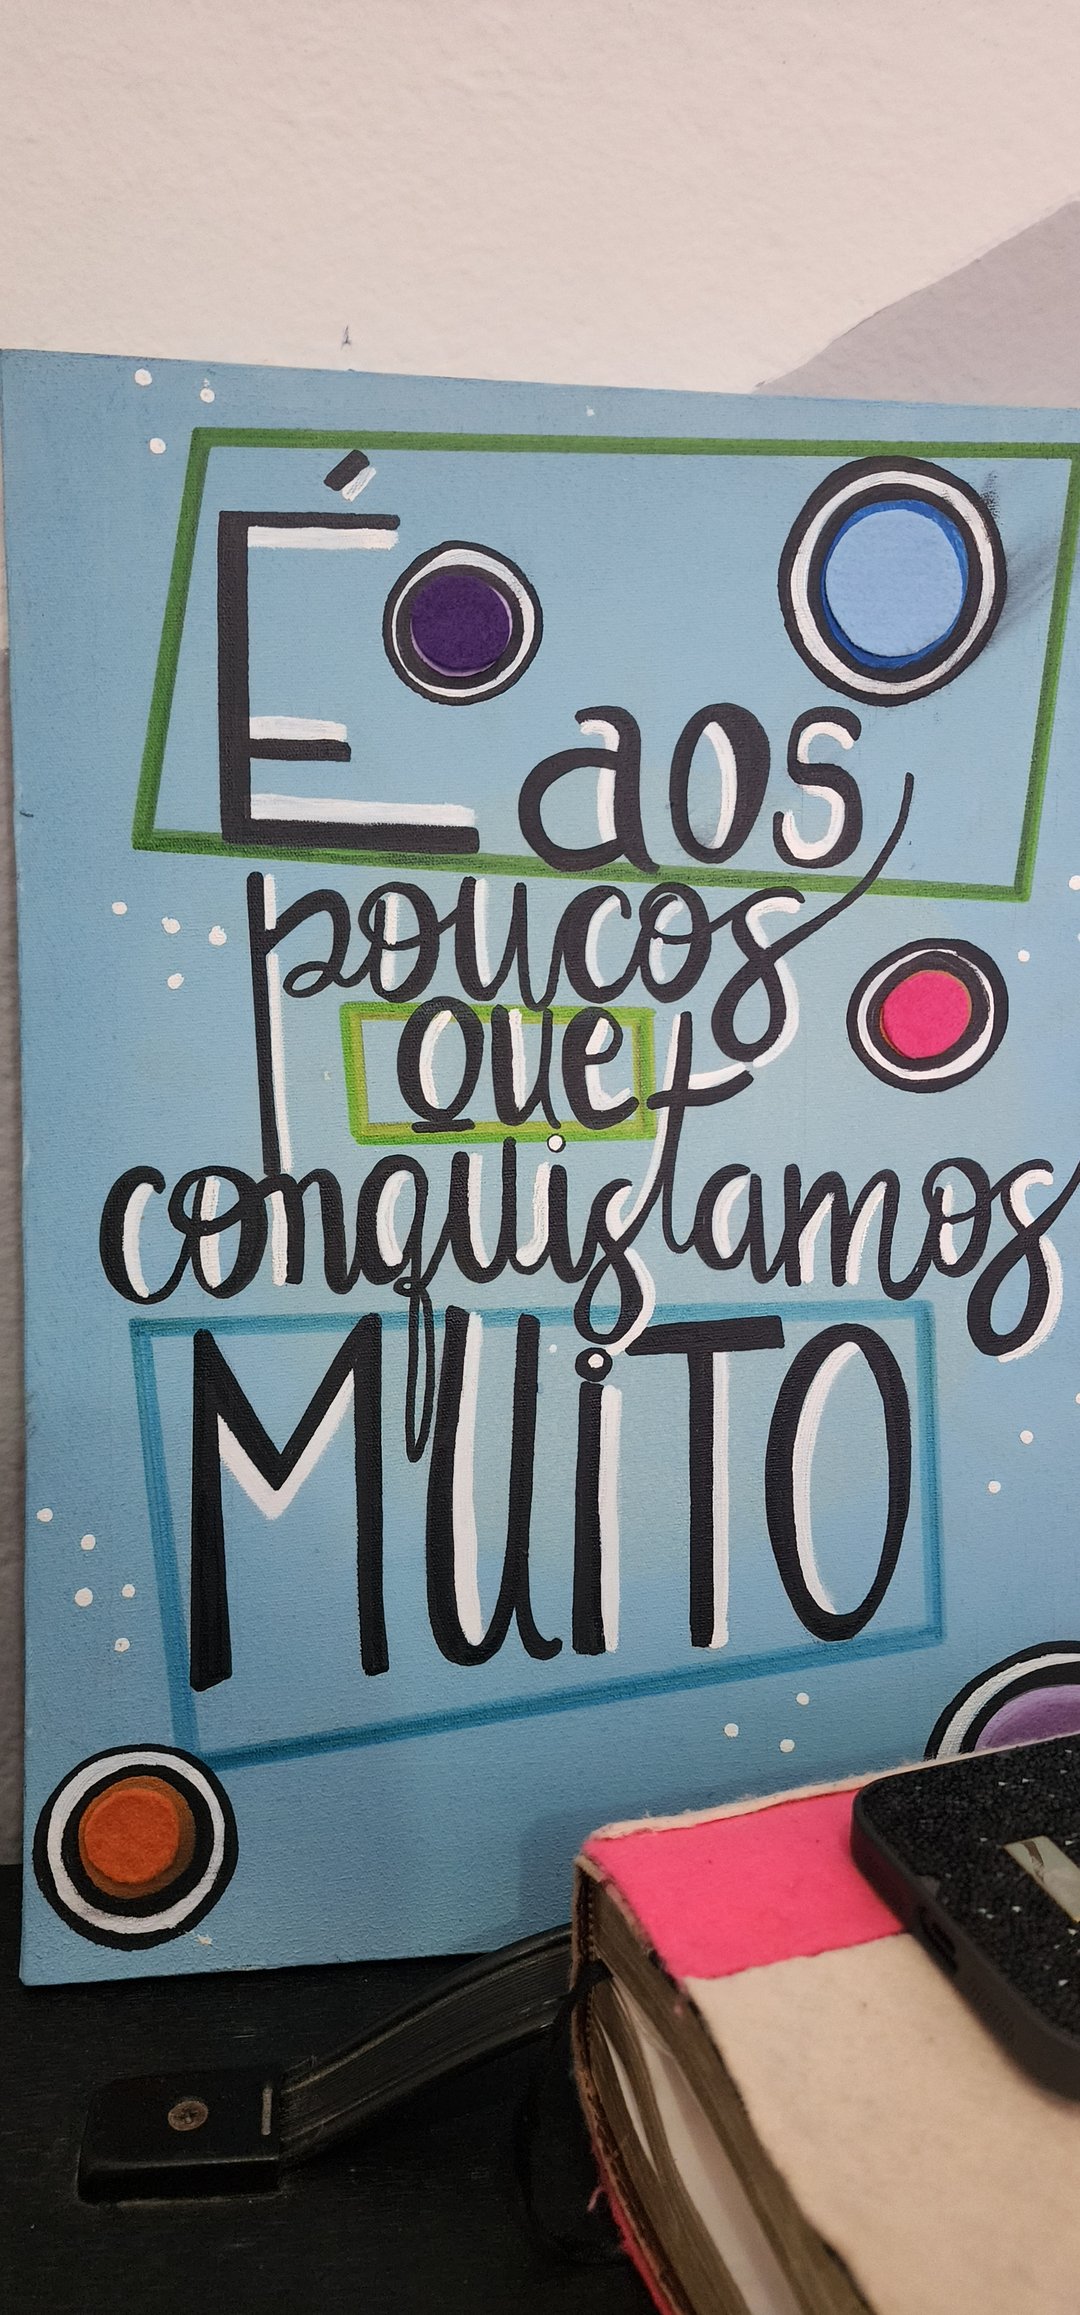 É aos
poucos
que
conquistamos
MUiTO